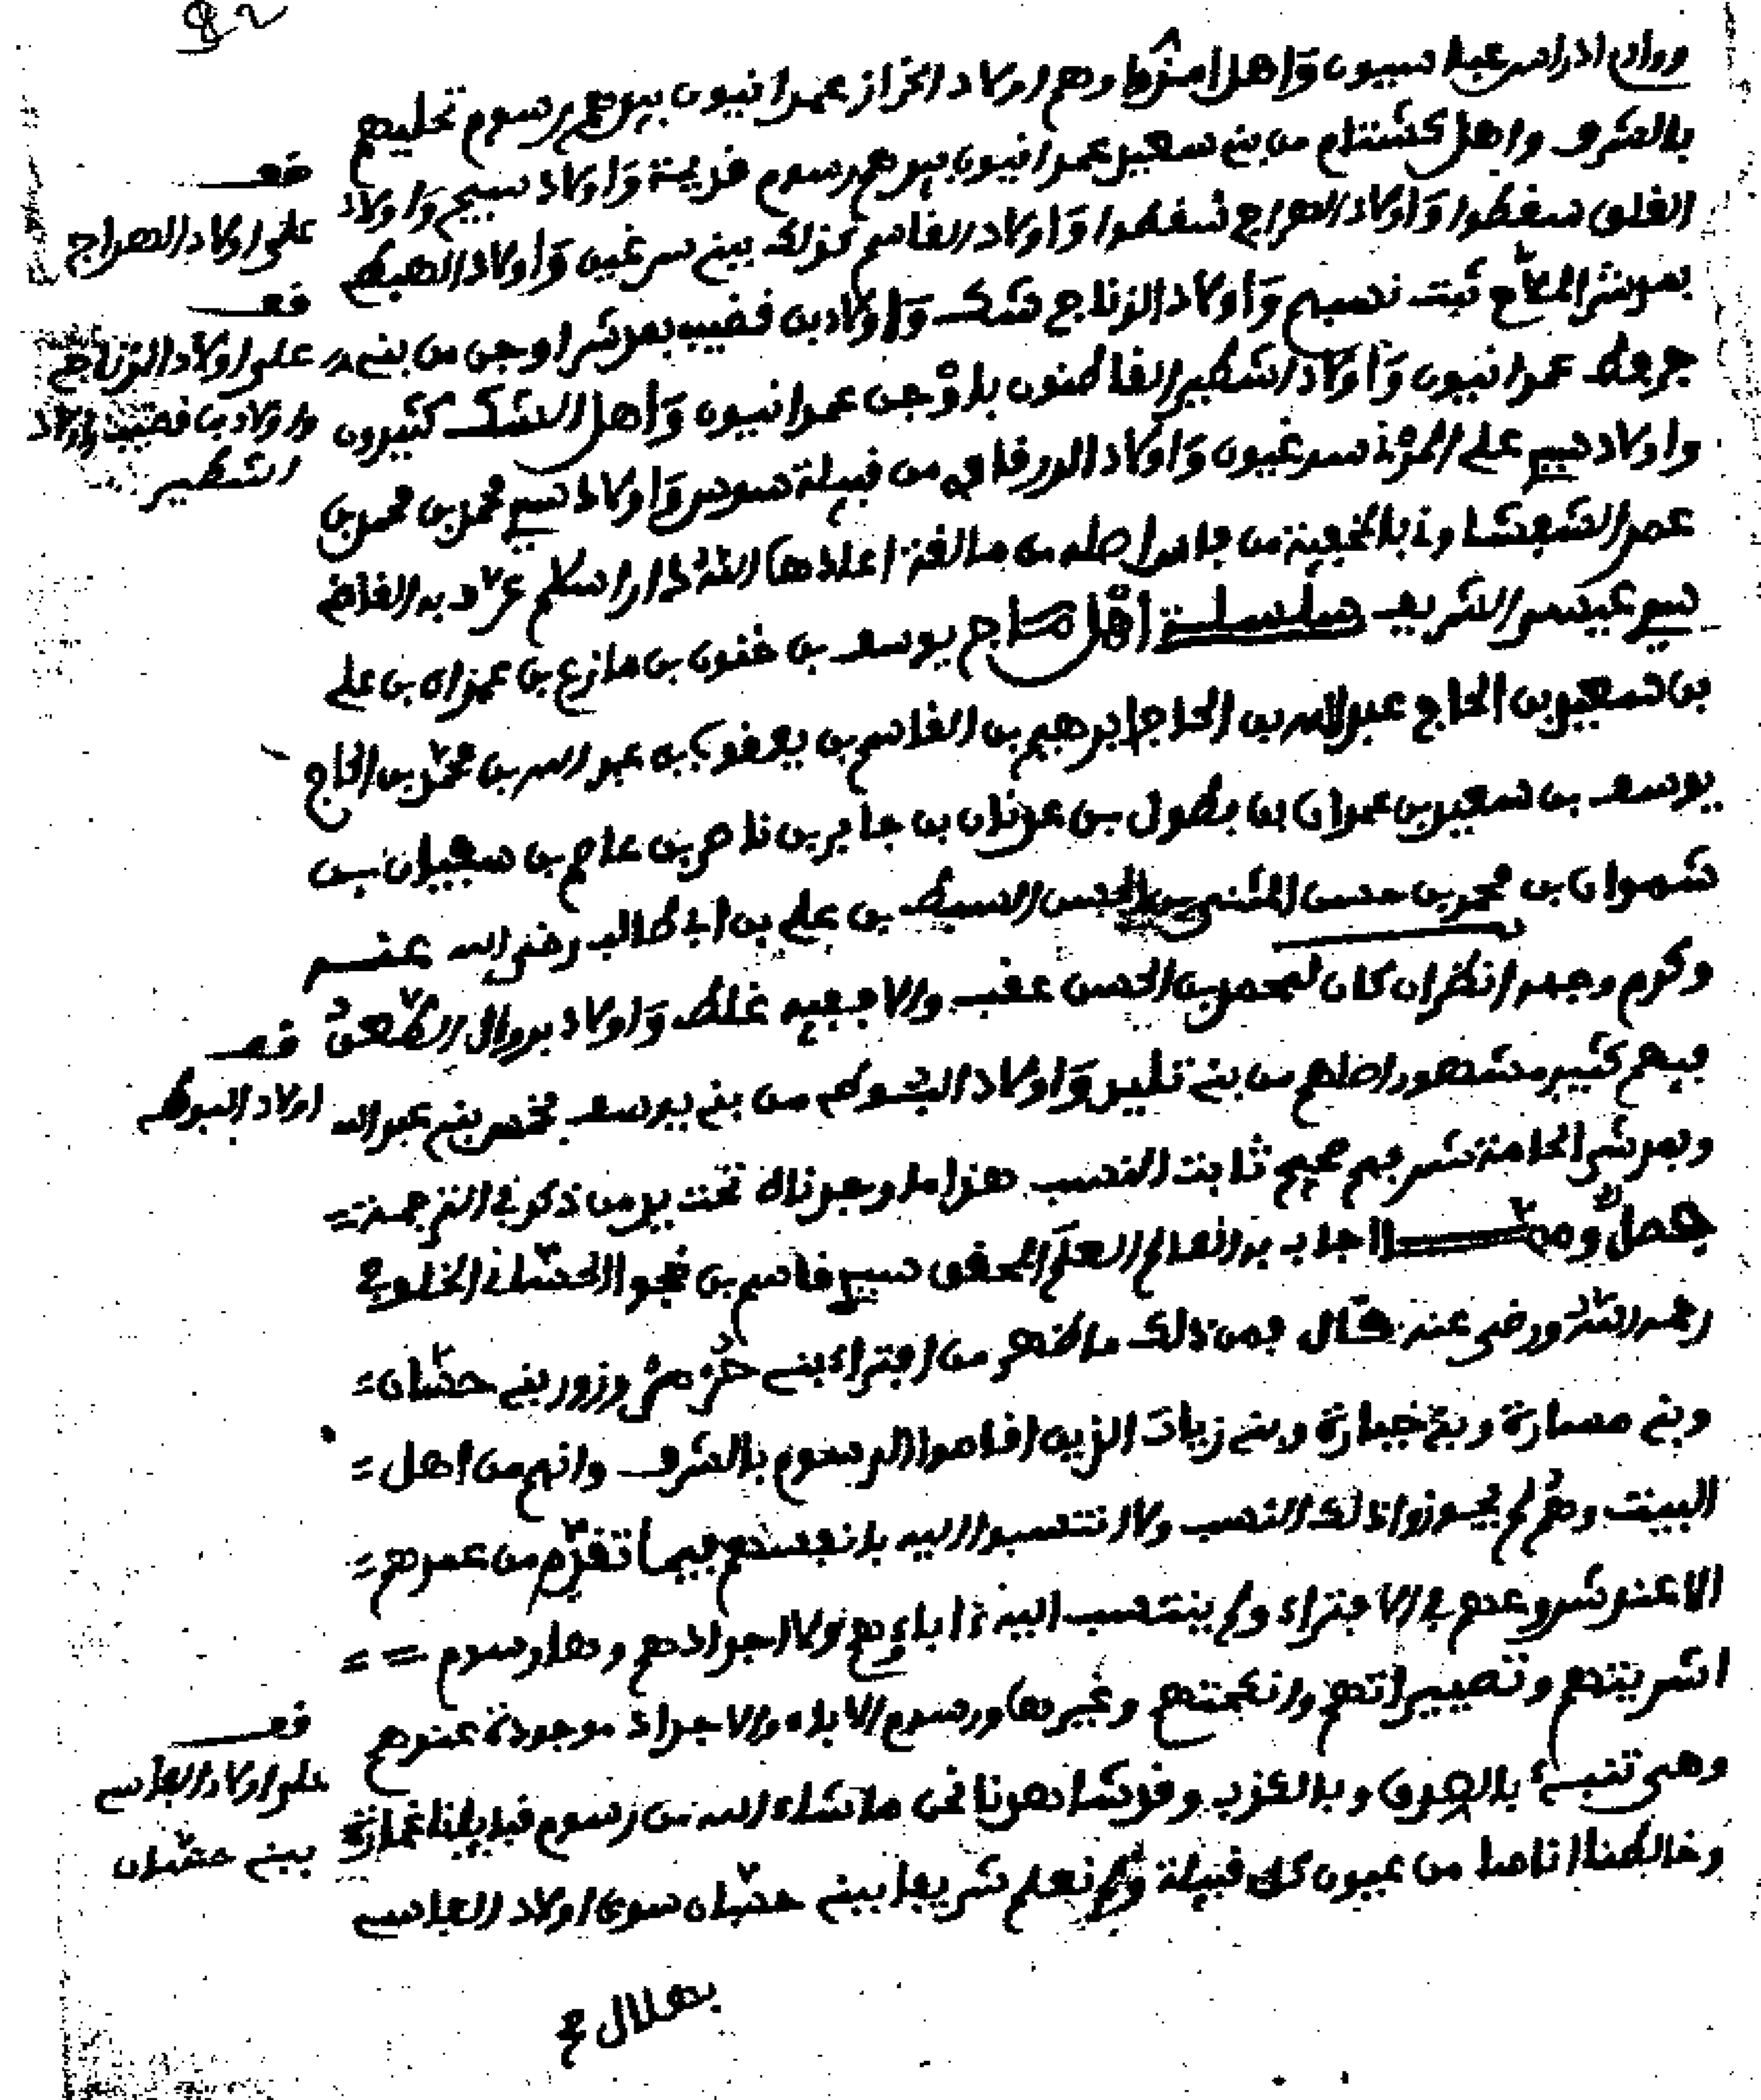 واولاد ادراس عباسيون وَاهل امزوا وهم اولاد الخراز عمرانيون بيدهم رسوم تحليهم
بالشرف واهل كشتام من بني سعيد عمرانيون بيدهم رسوم قديمة وَاولاد سبيح وَاولاد
الفلق سقطوا وَاولاد العراج سقطوا وَاولاد القاسم كذلك ببني سرغين وَاولاد الهبطي
بمدشر الملاح ثبت نسبهم وَاولاد الزناج شك وَاولاد بن قضيب بمدشر اوجن من بني
جرفط عمرانيون وَاولاد الشطير القاطنون باوجن عمرانيون وَاهل الشك كثيرون
واولاد سيدي علي سرغيون وَاولاد الورفاقي من قبيلة سوس وَاولاد سيدي محمد بن محمد بن
عمر الشفشاوني من فاس اصله من مالقة اعادها الله دار اسلام عرف به القاضي
سيدي عيسى الشريف سلسلة اهل يوسف بن خنون بن مازغ بن عمران بن علي
بن سعيد بن الحاج عبد الله بن الحاج ابرهيم بن القاسم بن يعقوب بن عبد الله بن محمد بن الحاج
يوسف بن سعيد بن عمران بن بطول بن عدنان بن جابر بن ناصر بن عاصم بن سعيدان بن
شهوان بن محمد بن حسن المثنى بن الحسن السبط بن علي بن ابي طالب رضي الله عنه
وكرم وجهه انظر ان كان لمحمد بن الحسن عقب والا ففيه غلط وَاولاد بروال الطعن
فيهم كثير مشهور اصلهم من بني تلير وَاولاد البوطي من بني يوسف بخمس بني عبد الله
وبمدشر الحامة شرفهم صحيح ثابت النسب هذا ما وجدناه تحت يد من ذكر في الترجمة
فصل ومما اجاب به العالم العلم المحقق سيدي قاسم بن فجوا الحساني الخلوفي
رحمه الله ورضي عنه قال فمن ذلك ما ظهر من افتراء بني حزمر وزور بني حسان
وبني مسارة وبني خيارة وبني زيات الذين اقاموا الرسوم بالشرف وانهم من اهل
البيت وهم لم يحوزوا ذلك النسب ولا انتسبوا اليه بانفسهم فيما تقدم من عمرهم
الا عند شروعهم في الافتراء ولم ينتسب اليه ءاباءهم ولا اجدادهم وها رسوم
اشريتهم وتصييراتهم وانكحتهم وغيرها ورسوم الاباء والاجداد موجودة عندهم
وهي تنبيء بالصدق وبالكذب وقد شاهدنا نحن ما شاء الله من رسوم قبايلنا غمارة
وخالطنا اناسا من عيون كل قبيلة ولم نعلم شريفا ببني حسان سوى اولاد الفاسي
بهلال
قف
على اولاد العراج
قف
على اولاد الزناج
واولاد بن قضيب واولاد
الشطير
قف
اولاد البوطي
قف
على اولاد الفاسي
ببني حسان